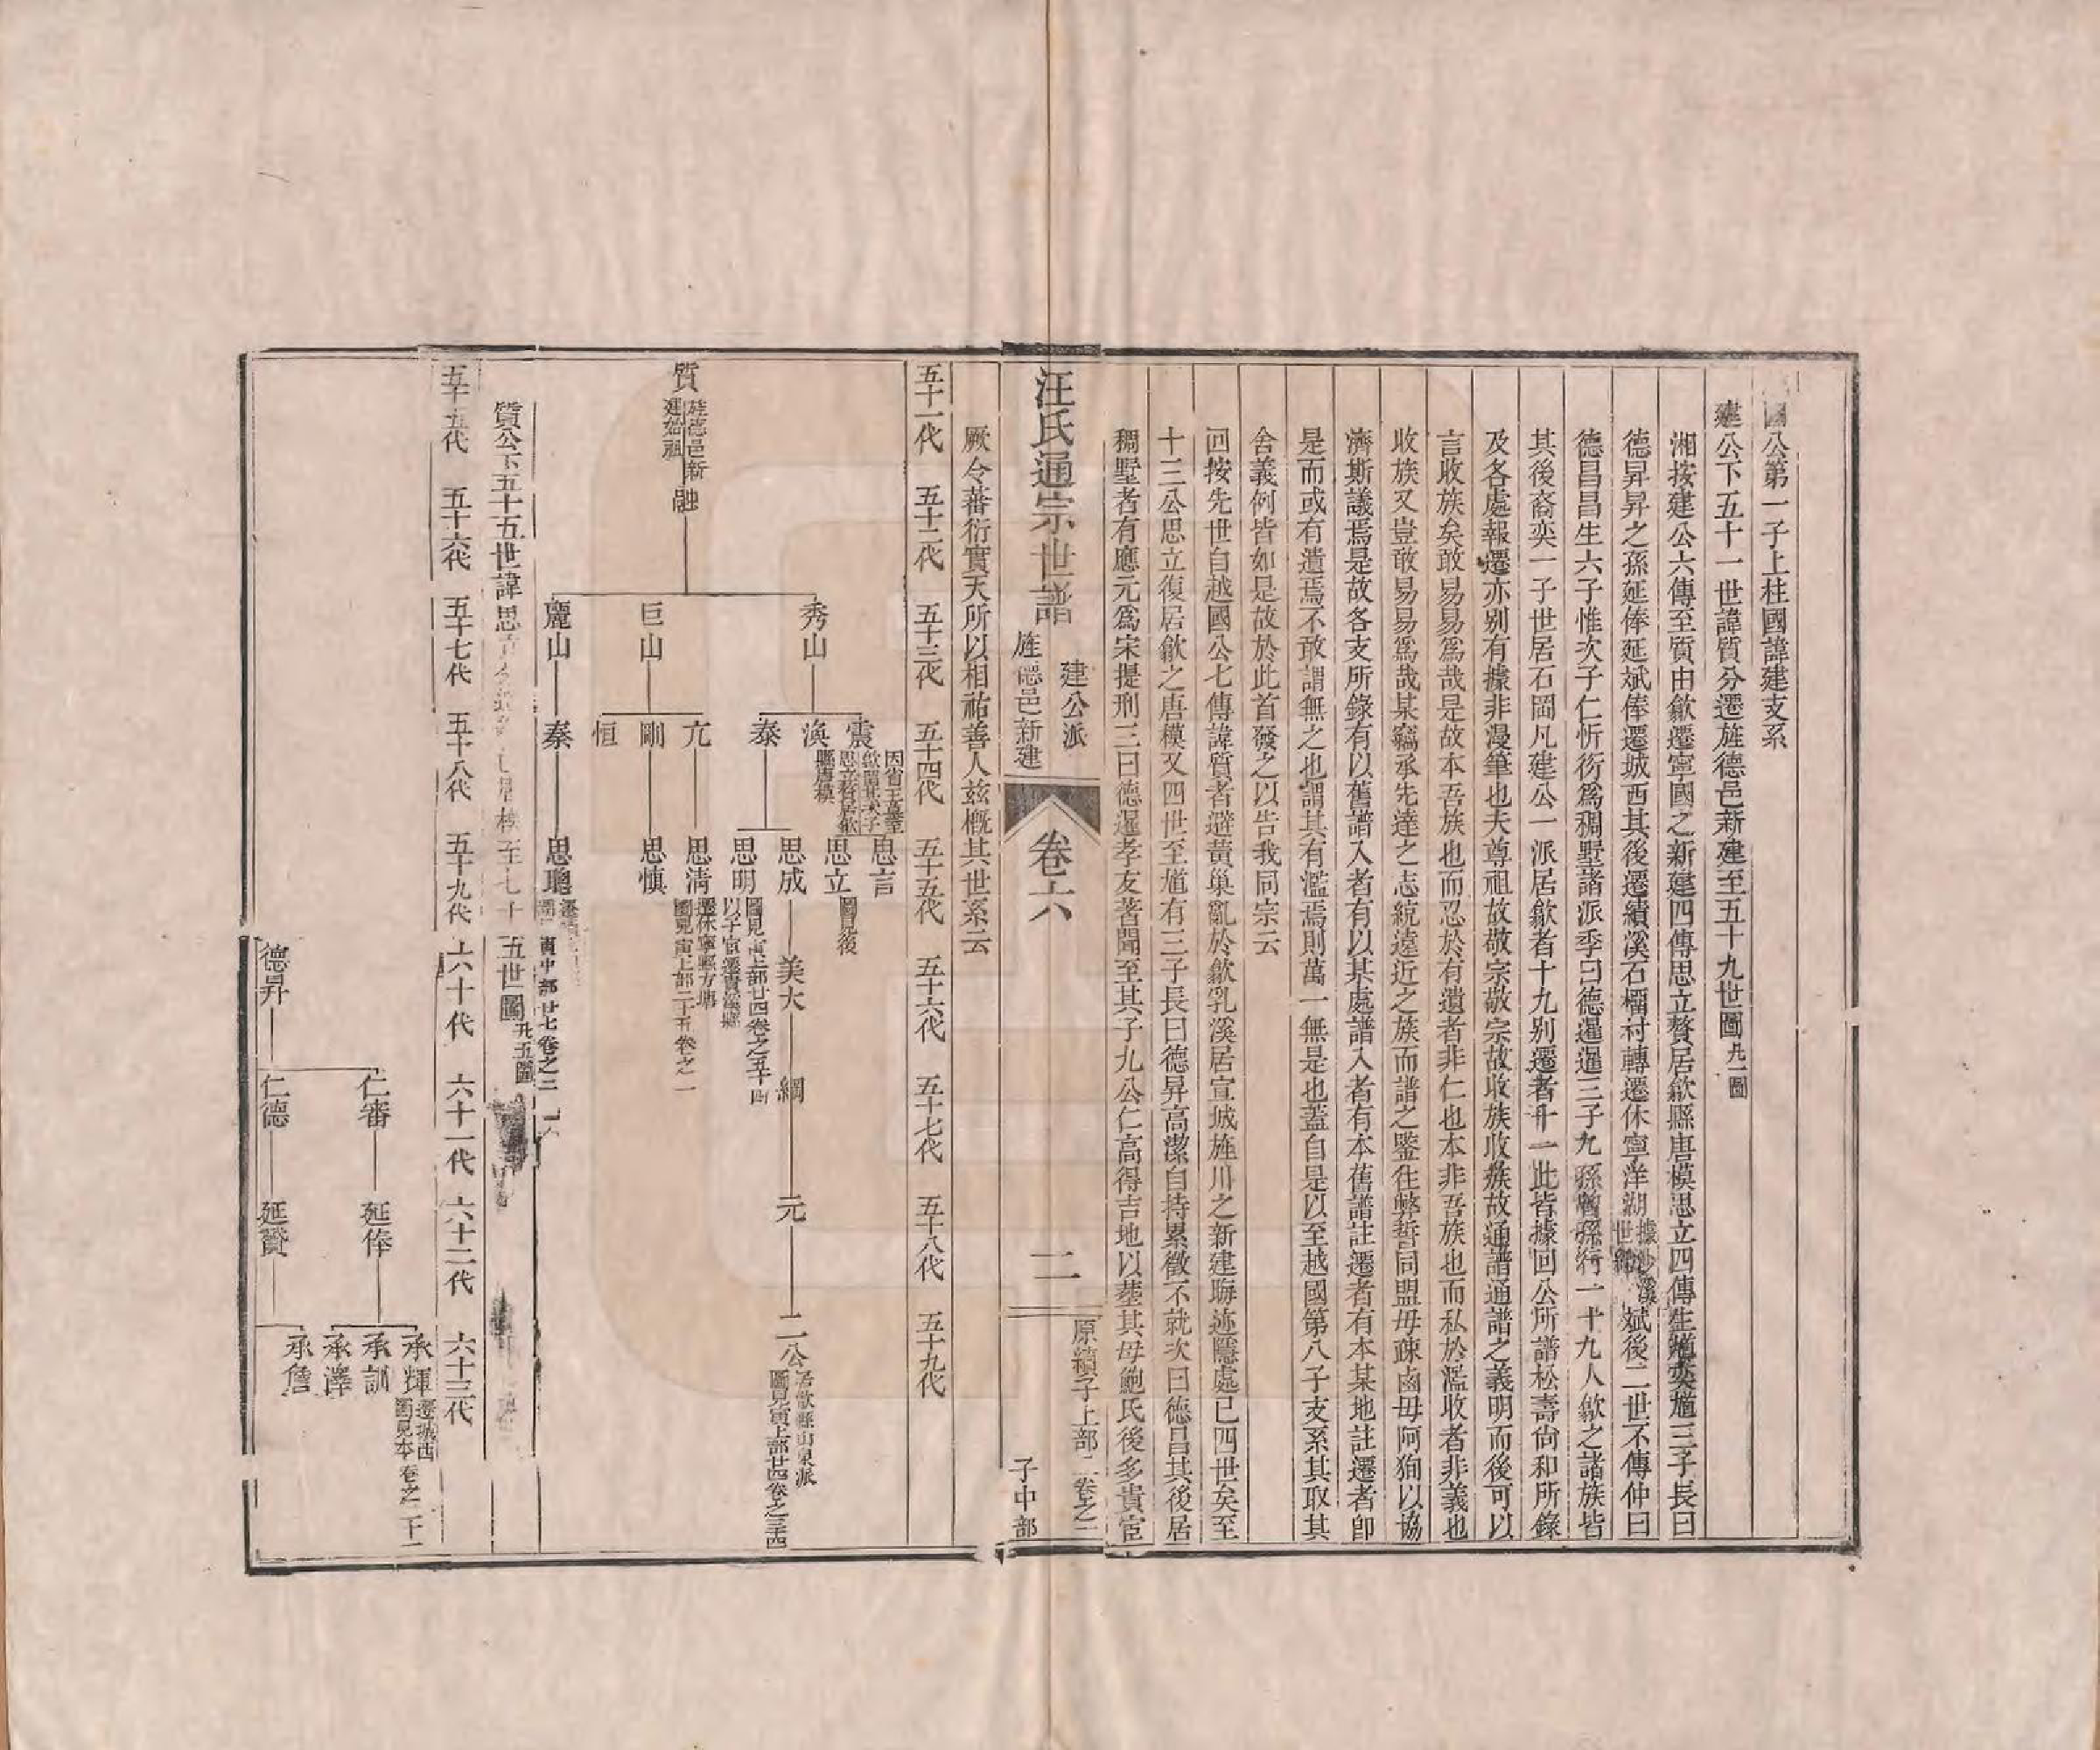 國公第一子上柱國諱建支系
建公下五十一世諱質分遷旌德邑新建至五十九世圖九一圖
湘按建公六傳至質由歙遷寧國之新建四傳思立贅居歙縣唐模思立四傳生馗奕馗三子長曰
德昇昇之孫延俸延斌俸遷城西其後遷績溪石橊村轉遷休寧洋湖據沙溪世斌後二世不傳仲曰
德昌昌生六子惟次子仁忻衍為稠墅諸派季曰德暹暹三子九孫曾孫行一十九人歙之諸族皆
其後裔奕一子世居石岡凡建公一派居歙者十九别遷者十一此皆據回公所譜松壽尙和所錄
及各處報遷亦别有據非漫筆也夫尊祖故敬宗敬宗故收族收族故通譜通譜之義明而後可以
言收族矣敢易易爲哉是故本吾族也而忍於有遺者非仁也本非吾族也而私於濫收者非義也
收族又豈敢易易爲哉某竊承先達之志統遠近之族而譜之鑒往弊誓同盟毋疎鹵毋阿狥以協
濟斯議焉是故各支所錄有以舊譜入者有以某處譜入者有本舊譜註遷者有本某地註遷者卽
是而或有遺焉不敢謂無之也謂其有濫焉則萬一無是也蓋自是以至越國第八子支系其取其
舍義例皆如是故於此首發之以告我同宗云
回按先世自越國公七傳諱質者避黃巢亂於歙乳溪居宣城旌川之新建晦迹隱處已四世矣至
十三公思立復居歙之唐模又四世至馗有三子長曰德昇高潔自持累徵不就次曰德昌其後居
稠墅者有應元爲宋提刑三曰德暹孝友著聞至其子九公仁高得吉地以塟其母鮑氏後多貴宦
汪氏通宗世譜
建公派
旌德邑新建
卷六
二
原績子上部二卷之二
子中部
厥令蕃衍實天所以相祐善人玆槪其世系云
五十一代 五十二代 五十三代 五十四代 五十五代 五十六代 五十七代 五十八代 五十九代
質 旌德邑新建始祖
融
秀山 巨山 麗山
震 渙 泰 亢 剛 恒 泰
思言
思立 圖見後
思成 美大 綱 元 二公 居歙縣山泉派圖見寅上部廿四卷之三十四
思明 圖見寅上部廿四卷之五十四
思淸 遷休寧縣方塘圖見寅上部二十五卷之一
思愼
思聰 寅中部廿七卷之三
質公下五十五世諱思 至七十五世圖九五圖
五十五代 五十六代 五十七代 五十八代 五十九代 六十代 六十一代 六十二代 六十三代
德昇
仁審 仁德
延俸 延贇
承輝 遷城西圖見本卷之二十一
承訓
承澤
承詹